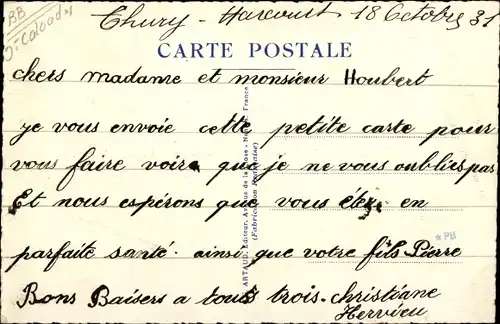 BB
Thury-Harcourt 18 Octobre 31
Dt Calvados
CARTE POSTALE
chers madame et monsieur Houbert
je vous envoie cette petite carte pour
vous faire voire que je ne vous oublies pas
Et nous espérons que vous ête en
parfaite santé. ainsi que votre fils Pierre
Bons Baisers a tous trois. christiane
Hervieu
ARTAUD, Editeur, Avenue de la Rose - France
(Fabrication Roumaine)
*PB